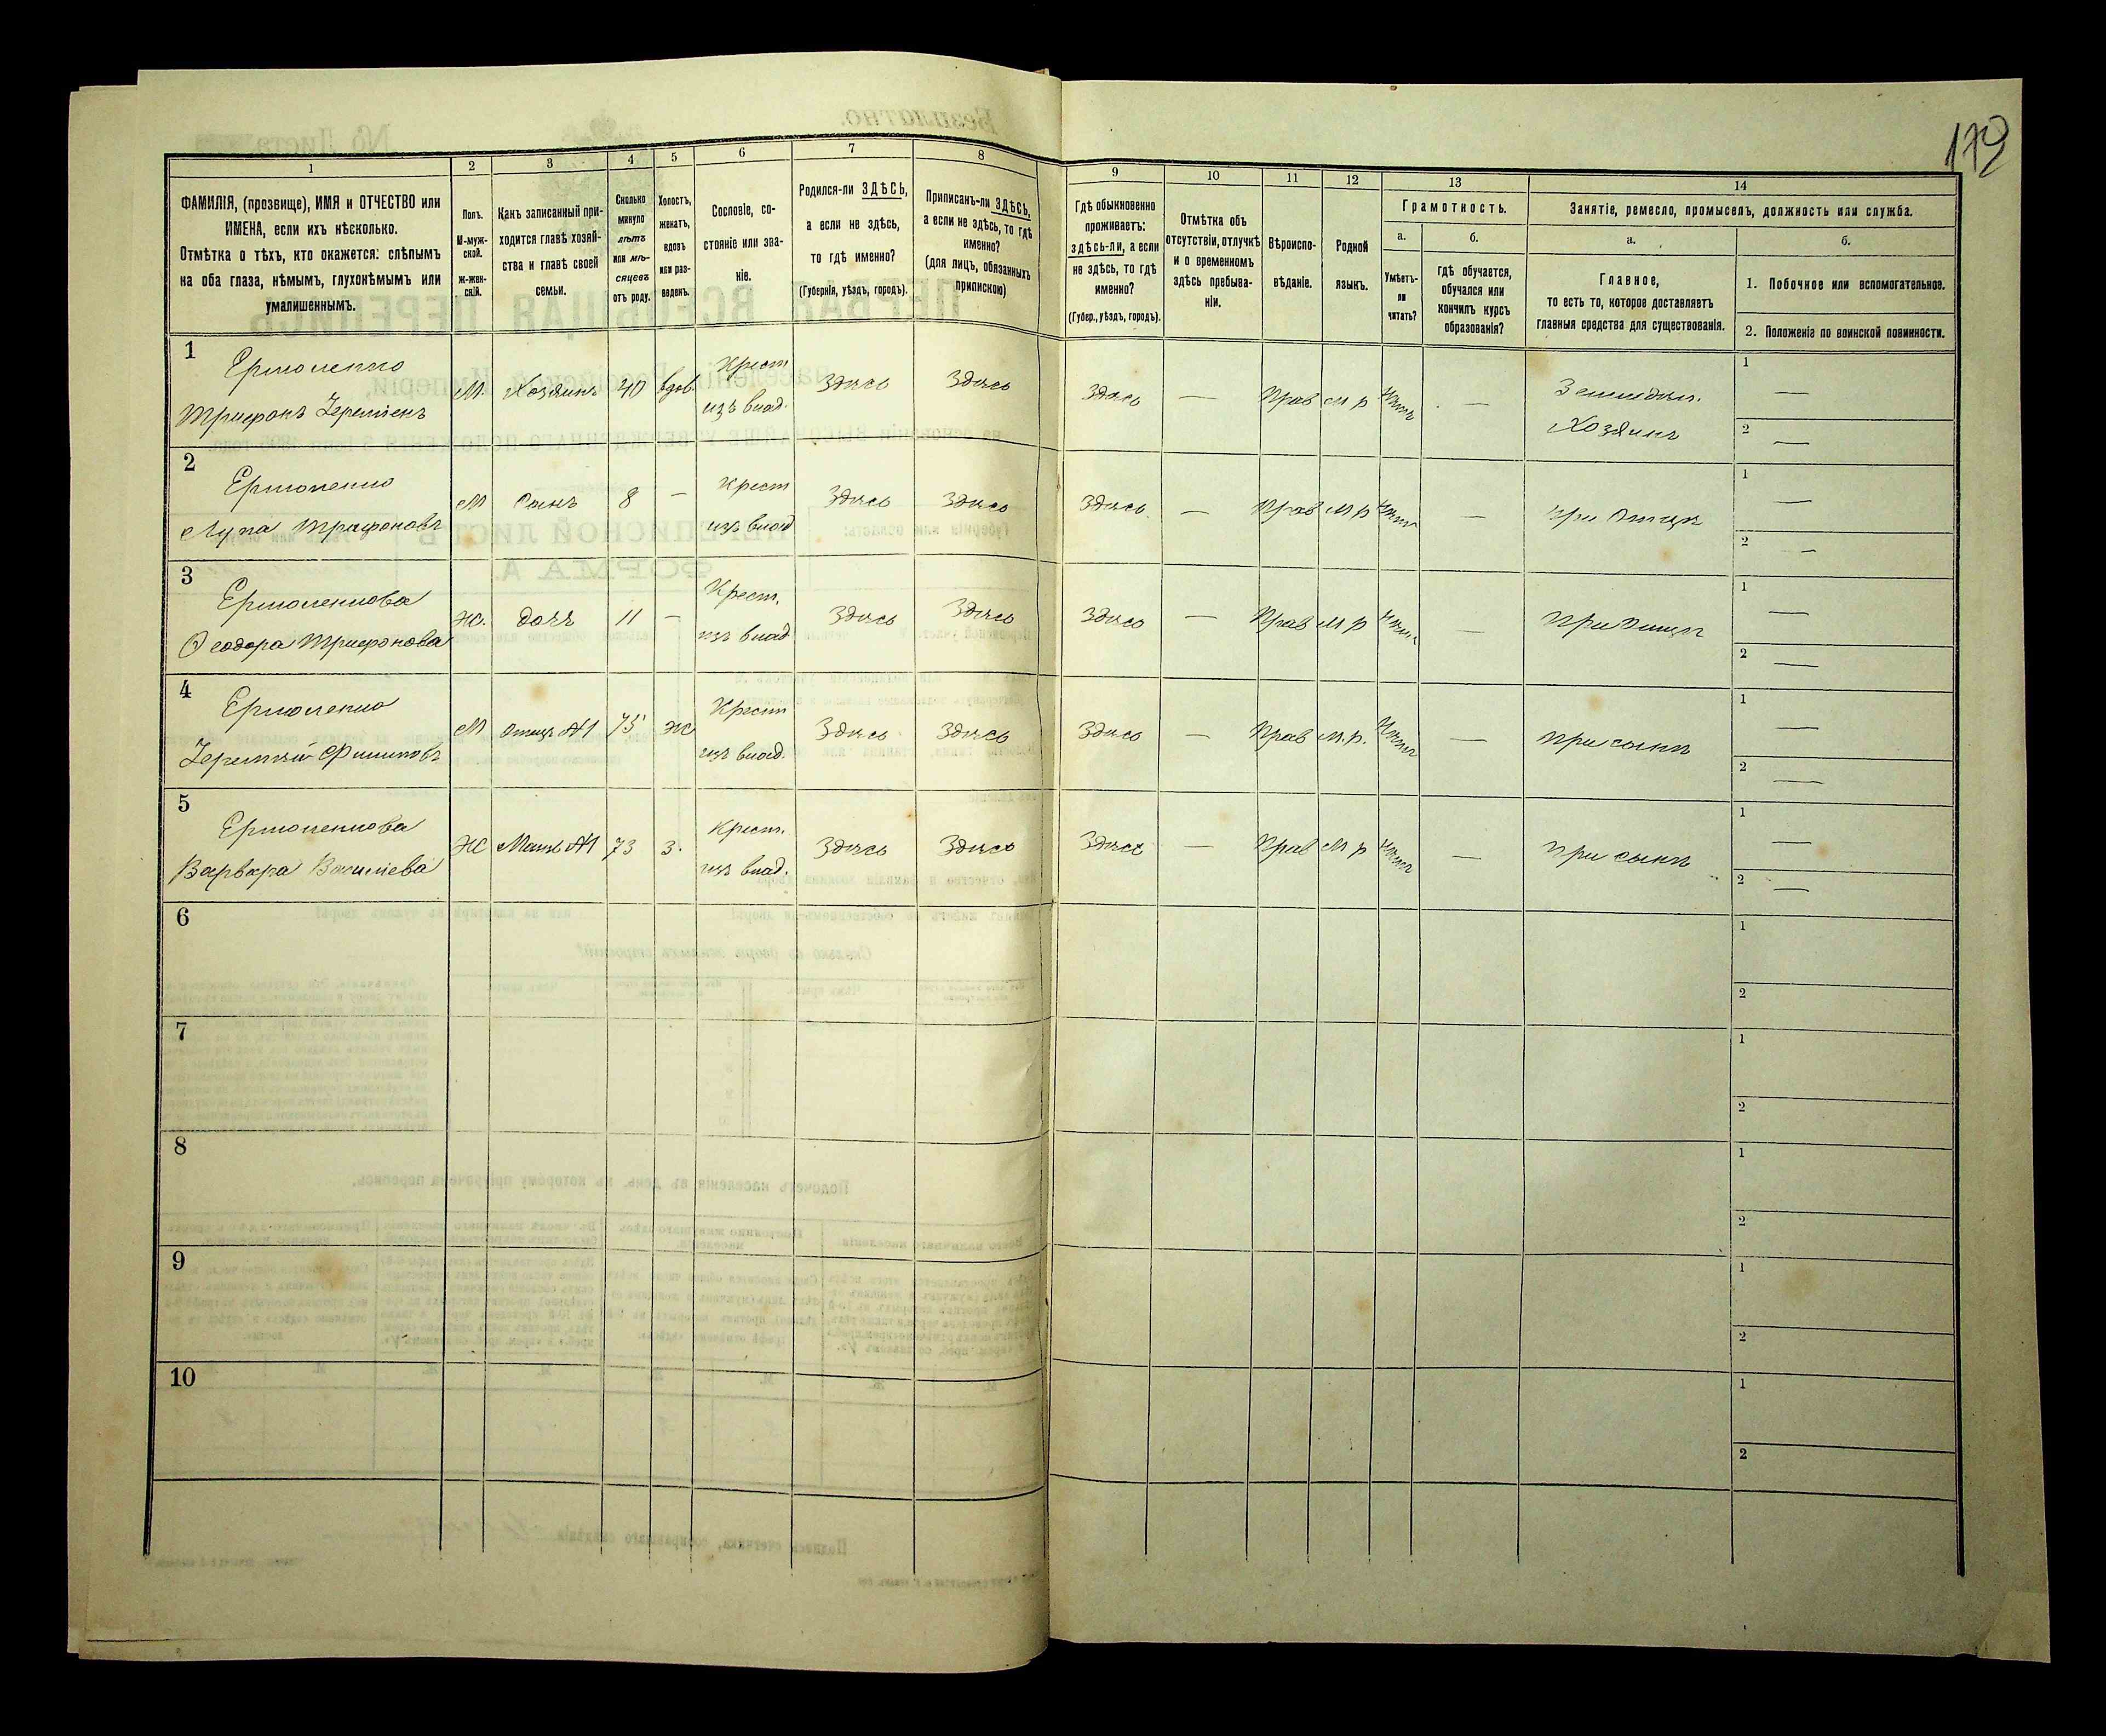 179
1
2
3
4
5
6
7
8
9
10
11
12
13
14
ФАМИЛІЯ, (прозвище), ИМЯ и ОТЧЕСТВО или
ИМЕНА, если ихъ нѣсколько.
Отмѣтка о тѣхъ, кто окажется: слѣпымъ
на оба глаза, нѣмымъ, глухонѣмымъ или
умалишеннымъ.
Полъ.
М-муж-
ской.
Ж-жен-
скій.
Какъ записанный при-
ходится главѣ хозяй-
ства и главѣ своей
семьи.
Сколько
минуло
лѣтъ
или мѣ-
сяцевъ
отъ роду.
Холостъ,
женатъ,
вдовъ
или раз-
веденъ.
Сословіе, со-
стояніе или зва-
ніе.
Родился-ли ЗДѢСЬ,
а если не здѣсь,
то гдѣ именно?
(Губернія, уѣздъ, городъ).
Приписанъ-ли ЗДѢСЬ,
а если не здѣсь, то гдѣ
именно?
(для лицъ, обязанныхъ
припискою)
Гдѣ обыкновенно
проживаетъ:
здѣсь-ли, а если
не здѣсь, то гдѣ
именно?
(Губер., уѣздъ, городъ).
Отмѣтка объ
отсутствіи, отлучкѣ
и о временномъ
здѣсь пребыва-
ніи.
Вѣроиспо-
вѣданіе.
Родной
языкъ.
Грамотность.
а.
б.
Умѣетъ-
ли
читать?
гдѣ обучается,
обучался или
кончилъ курсъ
образованія?
Занятіе, ремесло, промыселъ, должность или служба.
а.
б.
Главное,
то есть то, которое доставляетъ
главныя средства для существованія.
1. Побочное или вспомогательное.
2. Положеніе по воинской повинности.
1
Ермоленко
Трифонъ Іереміевъ
М. Хозяинъ 40 вдов. Крест. изъ влад. Здѣсь Здѣсь Здѣсь — Прав м р нѣтъ —
Земледѣл.
Хозяинъ
1 —
2 —
2
Ермоленко
Лупа Трифоновъ
М Сынъ 8 — Крест изъ влад Здѣсь Здѣсь Здѣсь. — Прав м р нѣтъ — при отцѣ
1 —
2 —
3
Ермоленкова
Ѳеодора Трифонова
Ж. дочь 11 — Крест. изъ влад Здѣсь Здѣсь Здѣсь — Прав м р нѣтъ — при отцѣ
1 —
2 —
4
Ермоленко
Іеремій Филиповъ
М отецъ №1 75 ж Крест изъ влад. Здѣсь Здѣсь Здѣсь — Прав м.р. нѣтъ — при сынѣ
1 —
2 —
5
Ермоленкова
Варвара Василіева
Ж Мать №1 73 з. Крест. изъ влад. Здѣсь Здѣсь Здѣсь — Прав м р нѣтъ — при сынѣ
1 —
2 —
6
1
2
7
1
2
8
1
2
9
1
2
10
1
2